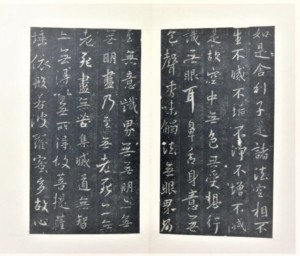 如是舍利子是諸法空相不
生不滅不垢不淨不增不減
是故空中無色無受想行
識無眼耳鼻舌身意無
色聲香味觸法無眼界乃
至無意識界無無明亦無
無明盡乃至無老死亦無
老死盡無苦集滅道無智
亦無得以無所得故菩提薩
埵依般若波羅蜜多故心